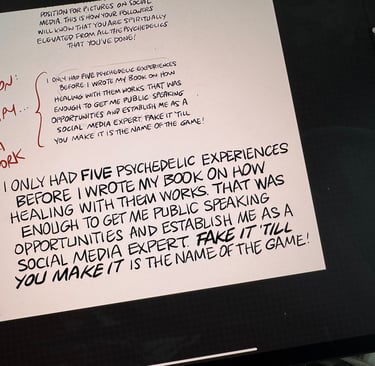 POSITION FOR PICTURES ON SOCIAL
MEDIA. THIS IS HOW YOUR FOLLOWERS
WILL KNOW THAT YOU ARE SPIRITUALLY
ELEVATED FROM ALL THE PSYCHEDELICS
THAT YOU'VE DONE!
ON:
I ONLY HAD FIVE PSYCHEDELIC EXPERIENCES
BEFORE I WROTE MY BOOK ON HOW
HEALING WITH THEM WORKS. THAT WAS
ENOUGH TO GET ME PUBLIC SPEAKING
OPPORTUNITIES AND ESTABLISH ME AS A
SOCIAL MEDIA EXPERT. FAKE IT 'TILL
YOU MAKE IT IS THE NAME OF THE GAME!
I ONLY HAD FIVE PSYCHEDELIC EXPERIENCES
BEFORE I WROTE MY BOOK ON HOW
HEALING WITH THEM WORKS. THAT WAS
ENOUGH TO GET ME PUBLIC SPEAKING
OPPORTUNITIES AND ESTABLISH ME AS A
SOCIAL MEDIA EXPERT. FAKE IT 'TILL
YOU MAKE IT IS THE NAME OF THE GAME!